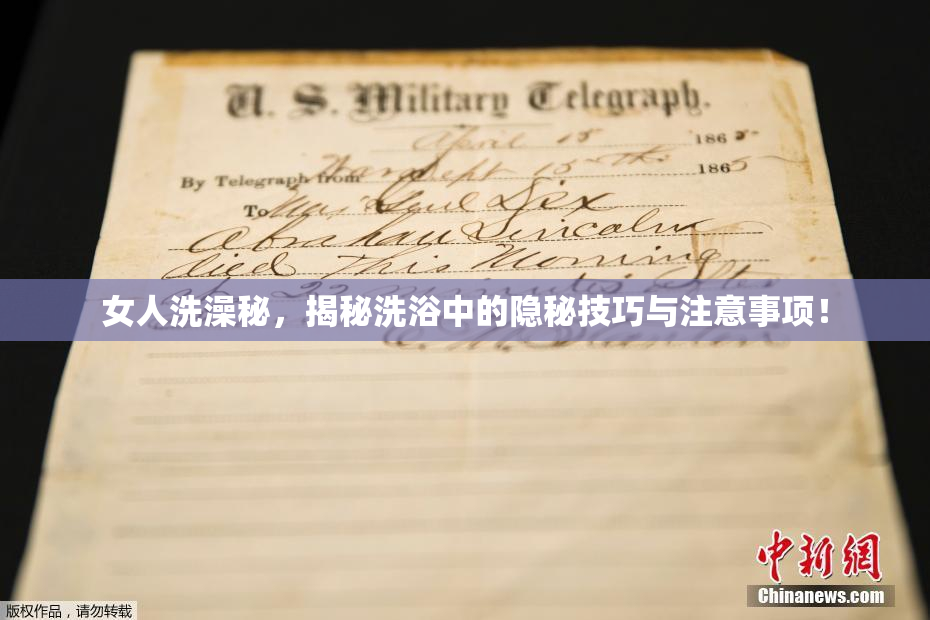 U. S. Military Telegraph.
April 15 1865
By Telegraph from War Dept 15th 1865
To Maj Genl Dix
Abraham Lincoln
died This Morning
at 22 minutes after
女人洗澡秘，揭秘洗浴中的隐秘技巧与注意事项！
E. M. Stanton
中新网
Chinanews.com
版权作品，请勿转载